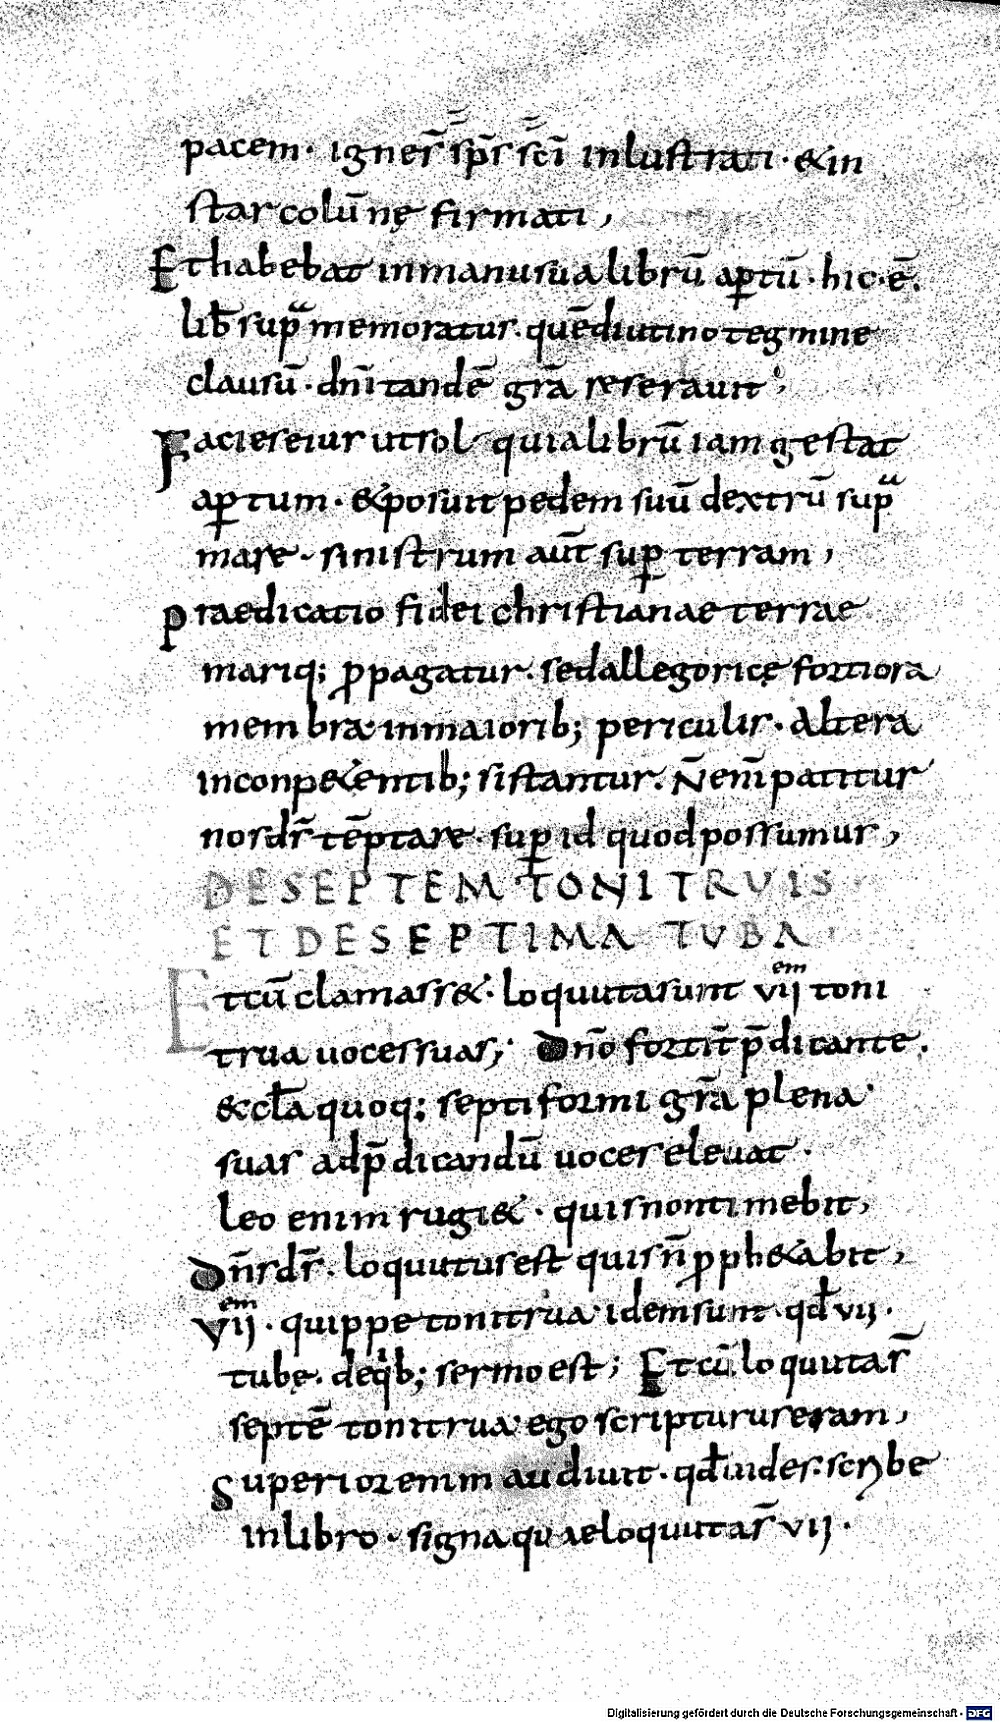 pacem · ignes̄ sp̄s sc̄i inlustrati · & in
star colūnę firmati,
Et habebat in manu sua librū aꝑtū · hic · ē.
lib̄ supᵃ memoratur. quē diutino tegmine
clausū · dn̄i tandē grā reserauit,
Facies eius ut sol quia librū iam gestat
aꝑtum · & posuit pedem suū dextrū supᵃ
mare · sinistrum aūt suꝑ terram,
Praedicatio fidei christianae terrae
mariq; ꝓpagatur. sed allegoricę fortiora
membra in maiorib; periculis · Altera
in conpetentib; sistantur. N̄ enī patitur
nos ds̄ tēptare · suꝑ id quod possumus,
DE SEPTEM TONITRUIS
ET DE SEPTIMA TUBA
Et cū clamass& · loquuta sunt vijᵉᵐ toni
trua uoces suas; Dn̄o fortit̄ p̄dicante.
& ecl̄a quoq; septiformi grā plena
suas ad p̄dicandū uoces eleuat ·
leo enim rugi& · quis non timebit,
Dn̄s ds̄ · loquutus est quis n̄ ꝓph&abit,
vijᵉᵐ · quippe tonitrua idem sunt · qđ vij ·
tubę. de qⁱb; sermo est; Et cū loquutas̄
septē tonitrua ego scripturus eram,
Superior enim audiuit · qđ uides scribe
in libro · signa quae loquutas̄ vij ·
Digitalisierung gefördert durch die Deutsche Forschungsgemeinschaft - DFG